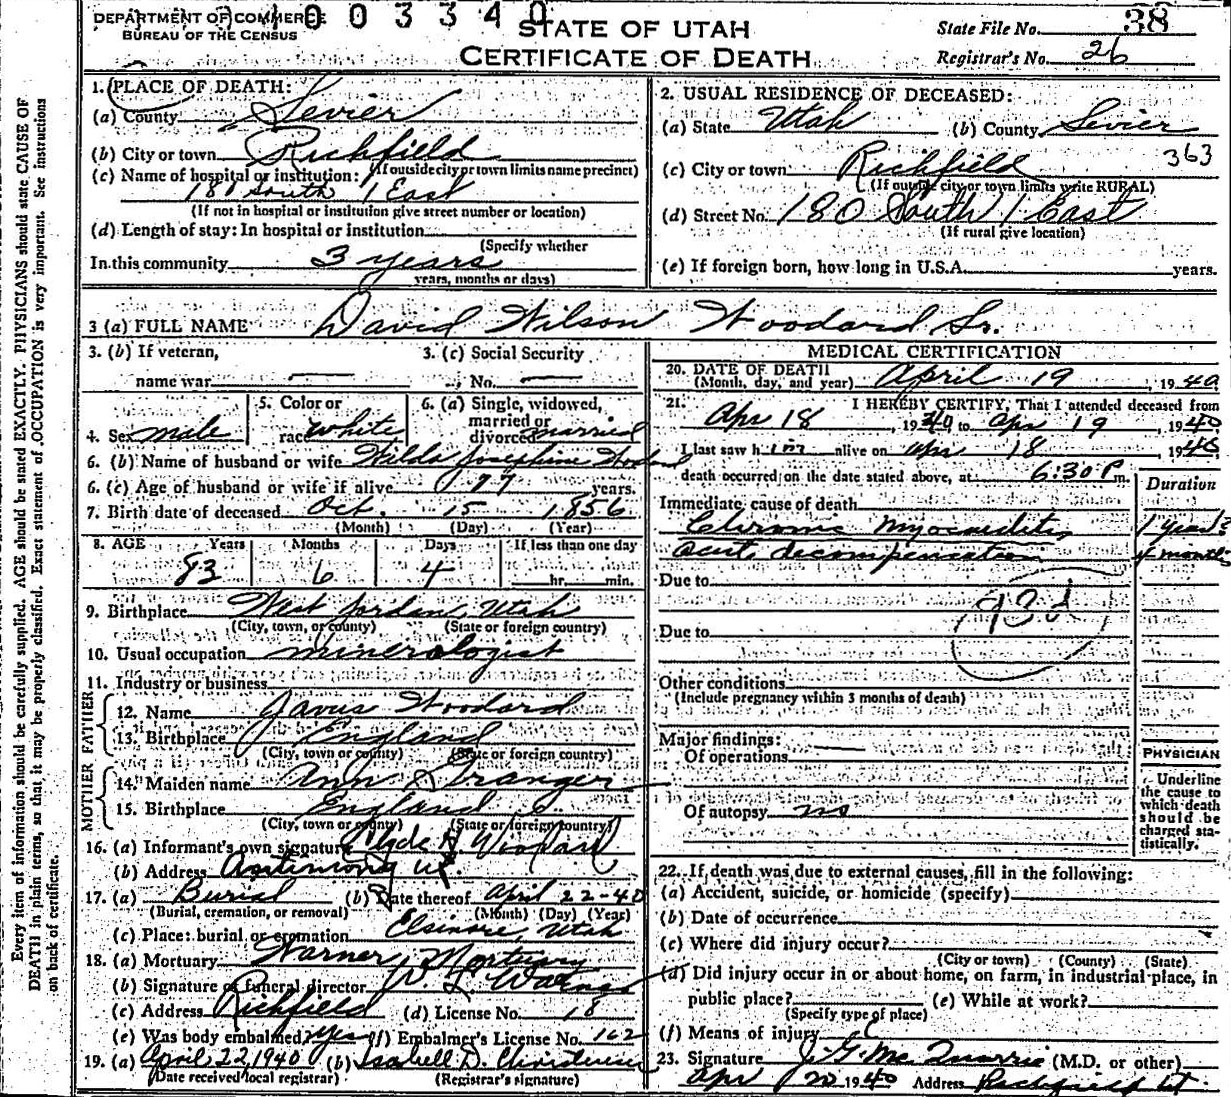 DEPARTMENT OF COMMERCE
BUREAU OF THE CENSUS
0 0 3 3 4 0
STATE OF UTAH
CERTIFICATE OF DEATH
State File No. 38
Registrar's No. 26
Every item of information should be carefully supplied. AGE should be stated EXACTLY. PHYSICIANS should state CAUSE OF
DEATH in plain terms, so that it may be properly classified. Exact statement of OCCUPATION is very important. See instructions
on back of certificate.
1. PLACE OF DEATH:
(a) County Sevier
(b) City or town Richfield
(If outside city or town limits name precinct)
(c) Name of hospital or institution:
180 South 1 East
(If not in hospital or institution give street number or location)
(d) Length of stay: In hospital or institution
(Specify whether
In this community 3 years
years, months or days)
2. USUAL RESIDENCE OF DECEASED:
(a) State Utah (b) County Sevier
363
(c) City or town Richfield
(If outside city or town limits write RURAL)
(d) Street No. 180 South 1 East
(If rural give location)
(e) If foreign born, how long in U.S.A. years.
3 (a) FULL NAME David Wilson Woodard Sr.
3. (b) If veteran,
name war
3. (c) Social Security
No.
4. Sex male
5. Color or
race white
6. (a) Single, widowed,
married or
divorced married
6. (b) Name of husband or wife Wilda Josephine Woodard
6. (c) Age of husband or wife if alive 77 years.
7. Birth date of deceased Oct. 15 1856
(Month) (Day) (Year)
8. AGE Years Months Days If less than one day
83 6 4 hr. min.
9. Birthplace West Jordan, Utah
(City, town, or county) (State or foreign country)
10. Usual occupation mineralogist
11. Industry or business
FATHER
12. Name Jarus Woodard
13. Birthplace England
(City, town or county) (State or foreign country)
MOTHER
14. Maiden name Ann Granger
15. Birthplace England
(City, town or county) (State or foreign country)
16. (a) Informant's own signature Clyde Woodard
(b) Address Antimony Ut.
17. (a) Burial (b) Date thereof April 22-40
(Burial, cremation, or removal) (Month) (Day) (Year)
(c) Place: burial or cremation Elsinore, Utah
18. (a) Mortuary Warner Mortuary
(b) Signature of funeral director
(c) Address Richfield (d) License No. 18
(e) Was body embalmed yes (f) Embalmer's License No. 162
19. (a) April 22, 1940 (b) Isabell D. Christensen
(Date received local registrar) (Registrar's signature)
MEDICAL CERTIFICATION
20. DATE OF DEATH
(Month, day, and year) April 19, 1940
21. I HEREBY CERTIFY, That I attended deceased from
Apr 18, 1940 to Apr 19, 1940
I last saw him alive on Apr 18 1940
death occurred on the date stated above, at 6:30 P.m.
Duration
Immediate cause of death
Chronic myocarditis 1 year
acute decompensation 4 months
Due to
93d
Due to
Other conditions
(Include pregnancy within 3 months of death)
Major findings:
Of operations
Of autopsy no
PHYSICIAN
Underline
the cause to
which death
should be
charged sta-
tistically.
22. If death was due to external causes, fill in the following:
(a) Accident, suicide, or homicide (specify)
(b) Date of occurrence
(c) Where did injury occur?
(City or town) (County) (State)
(d) Did injury occur in or about home, on farm, in industrial place, in
public place? (e) While at work?
(Specify type of place)
(f) Means of injury
23. Signature J. G. McQuarrie (M.D. or other)
Apr 20 1940 Address Richfield Ut.